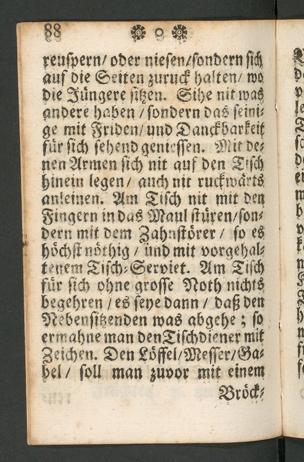 88
reuspern/ oder niesen/sondern sich
auf die Seiten zuruck halten/ wo
die Jüngere sitzen. Sihe nit was
andere haben / sondern das seini-
ge mit Friden/ und Danckbarkeit
für sich sehend geniessen. Mit de-
nen Armen sich nit auf den Tisch
hinein legen / auch nit ruckwärts
anleinen. Am Tisch nit mit den
Fingern in das Maul stüren/son-
dern mit dem Zahnstörer / so es
höchst nöthig / und mit vorgehal-
tenem Tisch-Serviet. Am Tisch
für sich ohne grosse Noth nichts
begehren / es seye dann / daß den
Nebensitzenden was abgehe ; so
ermahne man den Tischdiener mit
Zeichen. Den Löffel/Messer/Ga-
bel / soll man zuvor mit einem
Bröck-